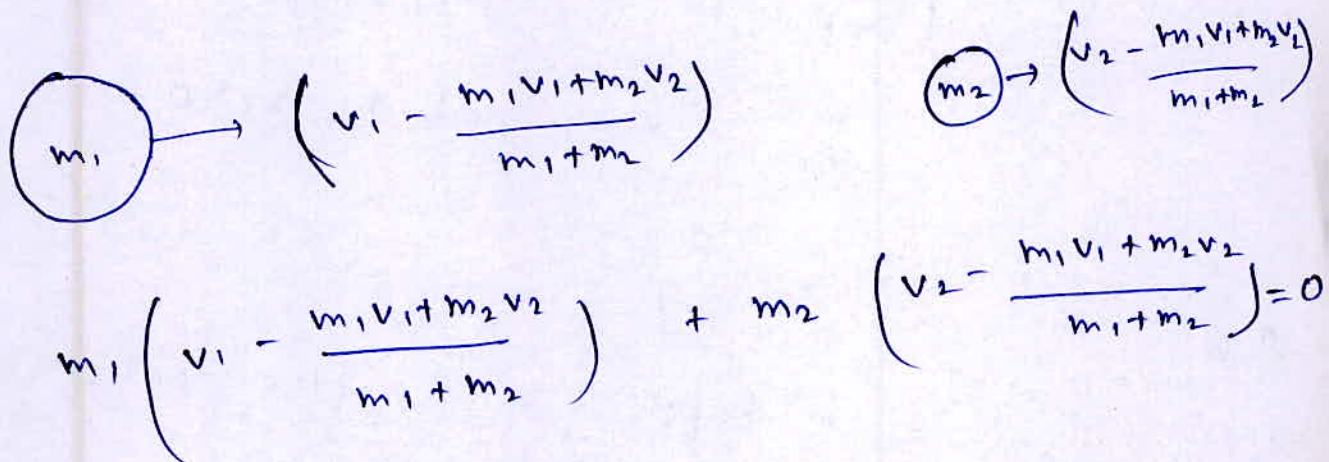 m₁ → (v₁ - (m₁v₁+m₂v₂)/(m₁+m₂))
m₂ → (v₂ - (m₁v₁+m₂v₂)/(m₁+m₂))
m₁ (v₁ - (m₁v₁+m₂v₂)/(m₁+m₂)) + m₂ (v₂ - (m₁v₁+m₂v₂)/(m₁+m₂)) = 0